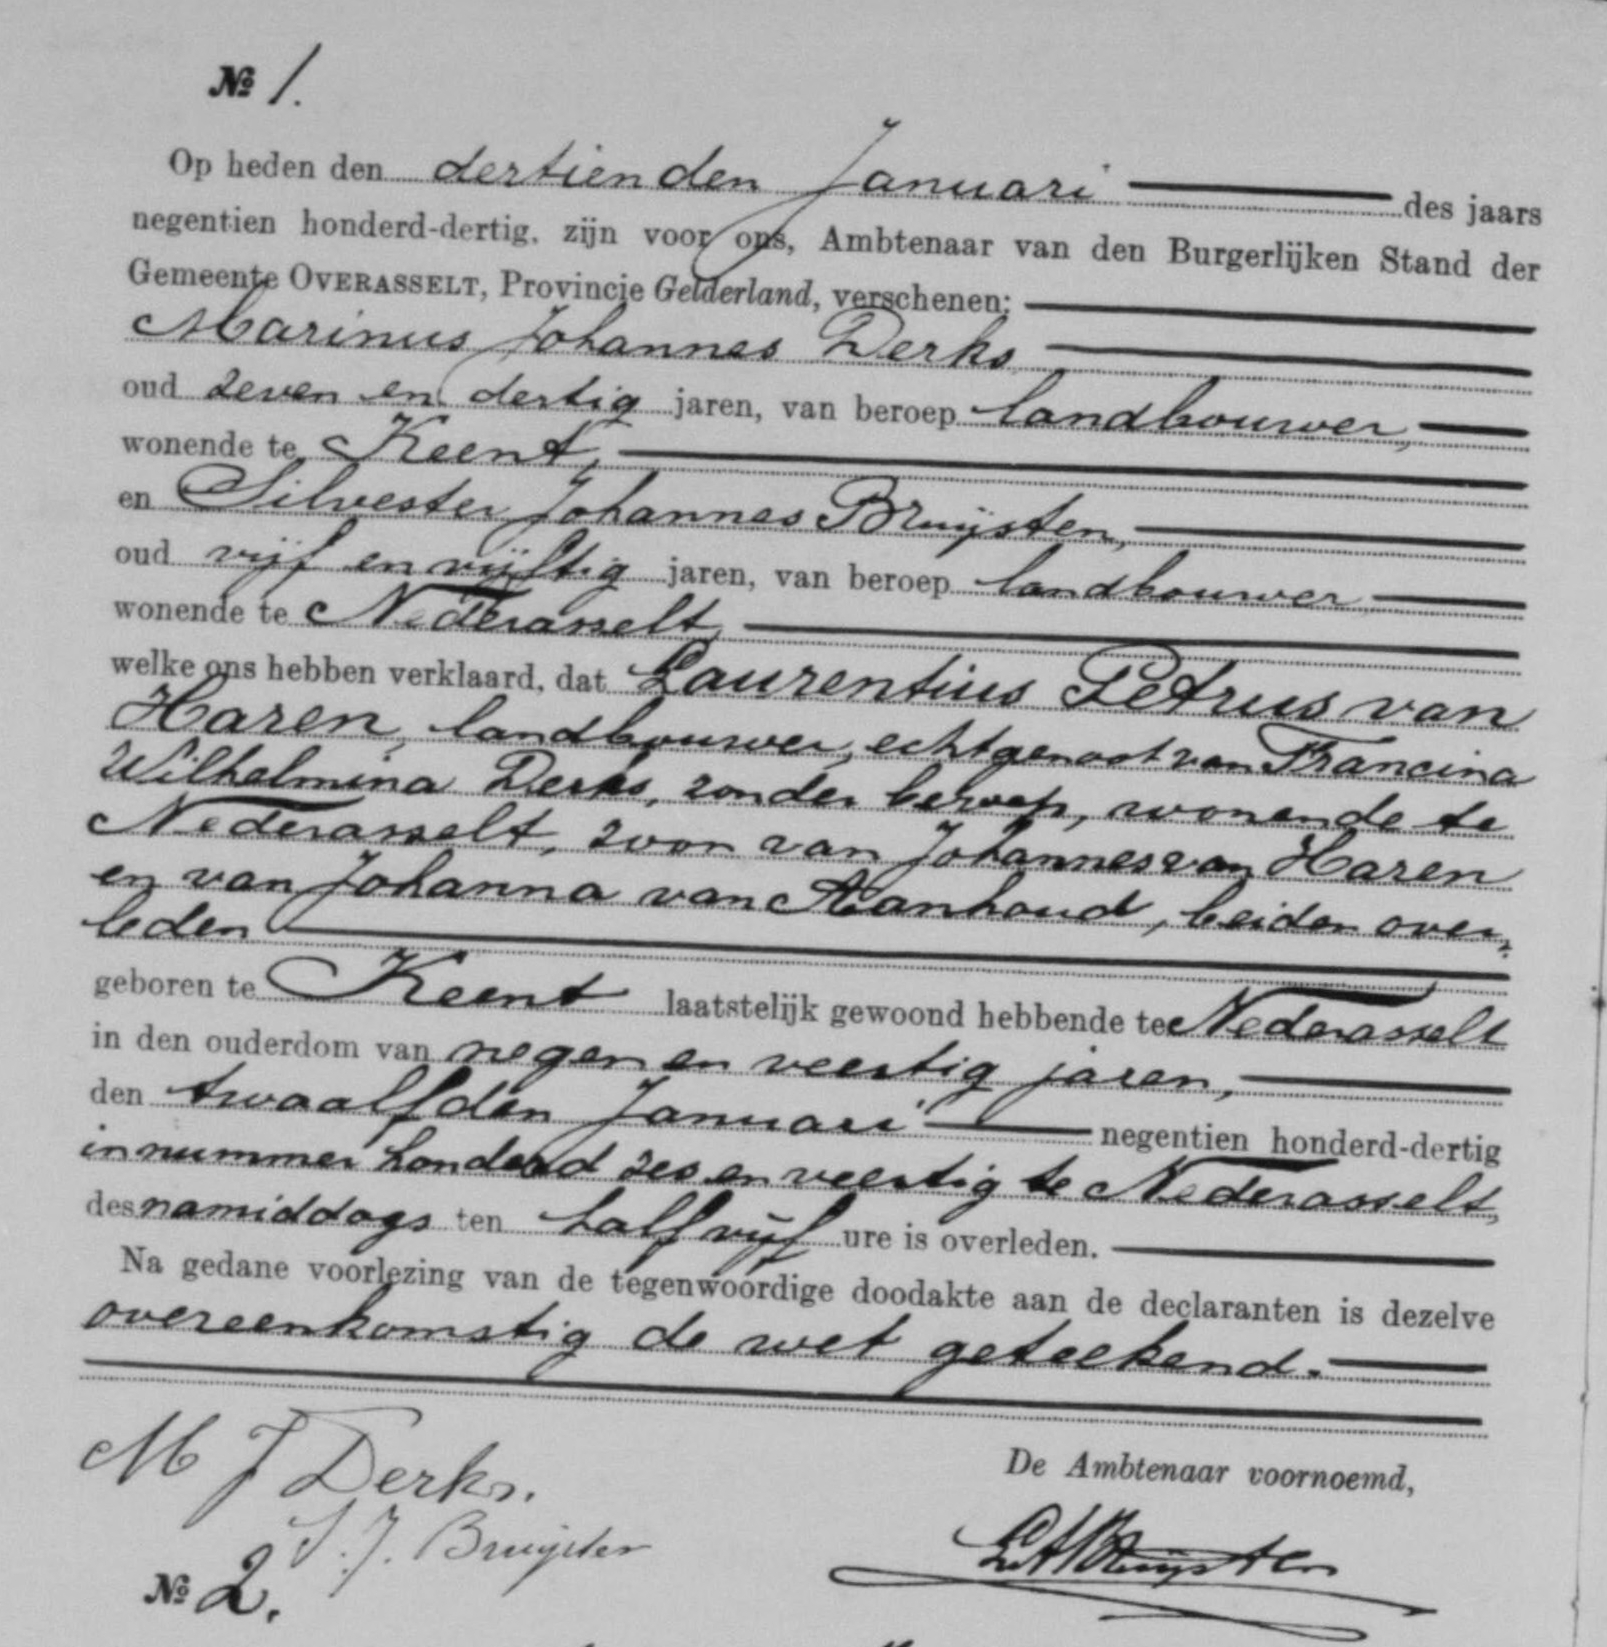 № 1.
Op heden den dertienden Januari des jaars
negentien honderd-dertig, zijn voor ons, Ambtenaar van den Burgerlijken Stand der
Gemeente OVERASSELT, Provincie Gelderland, verschenen:
Marinus Johannes Derks
oud zeven en dertig jaren, van beroep landbouwer,
wonende te Keent,
en Silvester Johannes Bruijsten,
oud vijf en vijftig jaren, van beroep landbouwer,
wonende te Nederasselt,
welke ons hebben verklaard, dat Laurentius Petrus van
Haren, landbouwer, echtgenoot van Francina
Wilhelmina Derks, zonder beroep, wonende te
Nederasselt, zoon van Johannes van Haren
en van Johanna van Aanhoud, beiden over-
leden
geboren te Keent laatstelijk gewoond hebbende te Nederasselt
in den ouderdom van negen en veertig jaren,
den twaalfden Januari negentien honderd-dertig
in nummer honderd zes en veertig te Nederasselt,
des namiddags ten half vijf ure is overleden.
Na gedane voorlezing van de tegenwoordige doodakte aan de declaranten is dezelve
overeenkomstig de wet geteekend.
M J Derks.
De Ambtenaar voornoemd,
S. J. Bruijsten
№ 2.